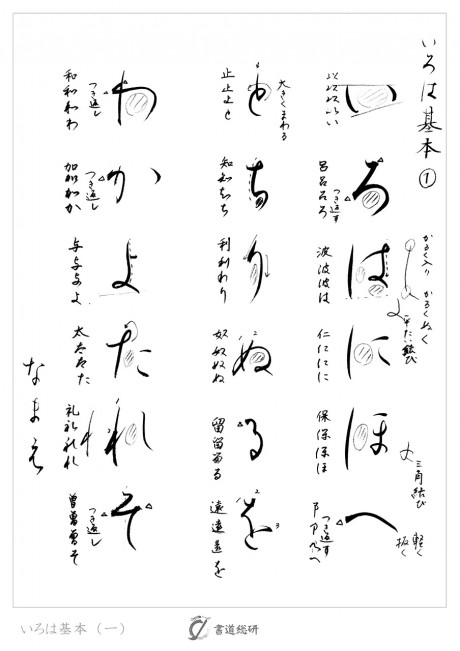 いろは基本①
い
以
ろ
呂呂呂ろ
つき返す
は
波波波は
かるく入り かるくぬく
平たい結び
に
仁に
ほ
保保ほほ
三角結び
へ
つき返す
軽く
抜く
と
止止と
大きくまわる
ち
知知ちち
り
利利わり
ぬ
奴奴ぬぬ
る
留留るる
を
遠遠遠を
わ
和和わわ
つき返し
か
加加かか
つき返し
よ
与与与よ
た
太太た
れ
礼礼礼れ
そ
曽曽曽そ
つき返し
なまえ
いろは基本(一)
書道総研